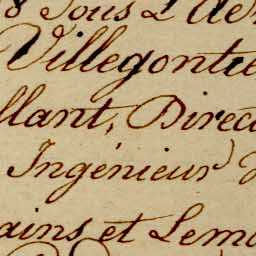 Sous L
Villegontie
llant, Direc
Ingénieur
ains et Lem